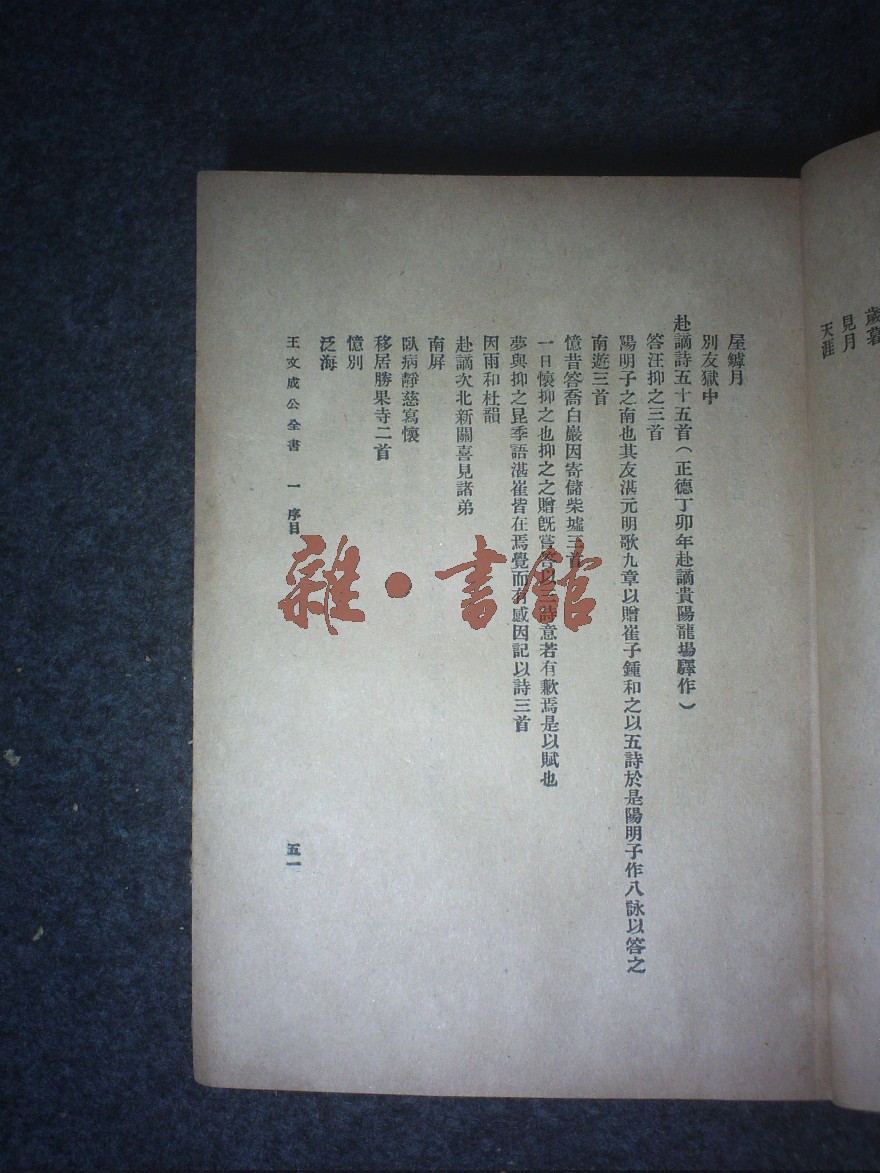 歲暮
見月
天涯
屋罅月
別友獄中
赴謫詩五十五首（正德丁卯年赴謫貴陽龍場驛作）
答汪抑之三首
陽明子之南也其友湛元明歌九章以贈崔子鍾和之以五詩於是陽明子作八詠以答之
南遊三首
憶昔答喬白巖因寄儲柴墟三首
一日懷抑之也抑之之贈旣嘗答以三詩意若有歉焉是以賦也
夢與抑之昆季語湛崔皆在焉覺而有感因記以詩三首
因雨和杜韻
赴謫次北新關喜見諸弟
南屏
臥病靜慈寫懷
移居勝果寺二首
憶別
泛海
王文成公全書 一 序目 五一
雜·書館